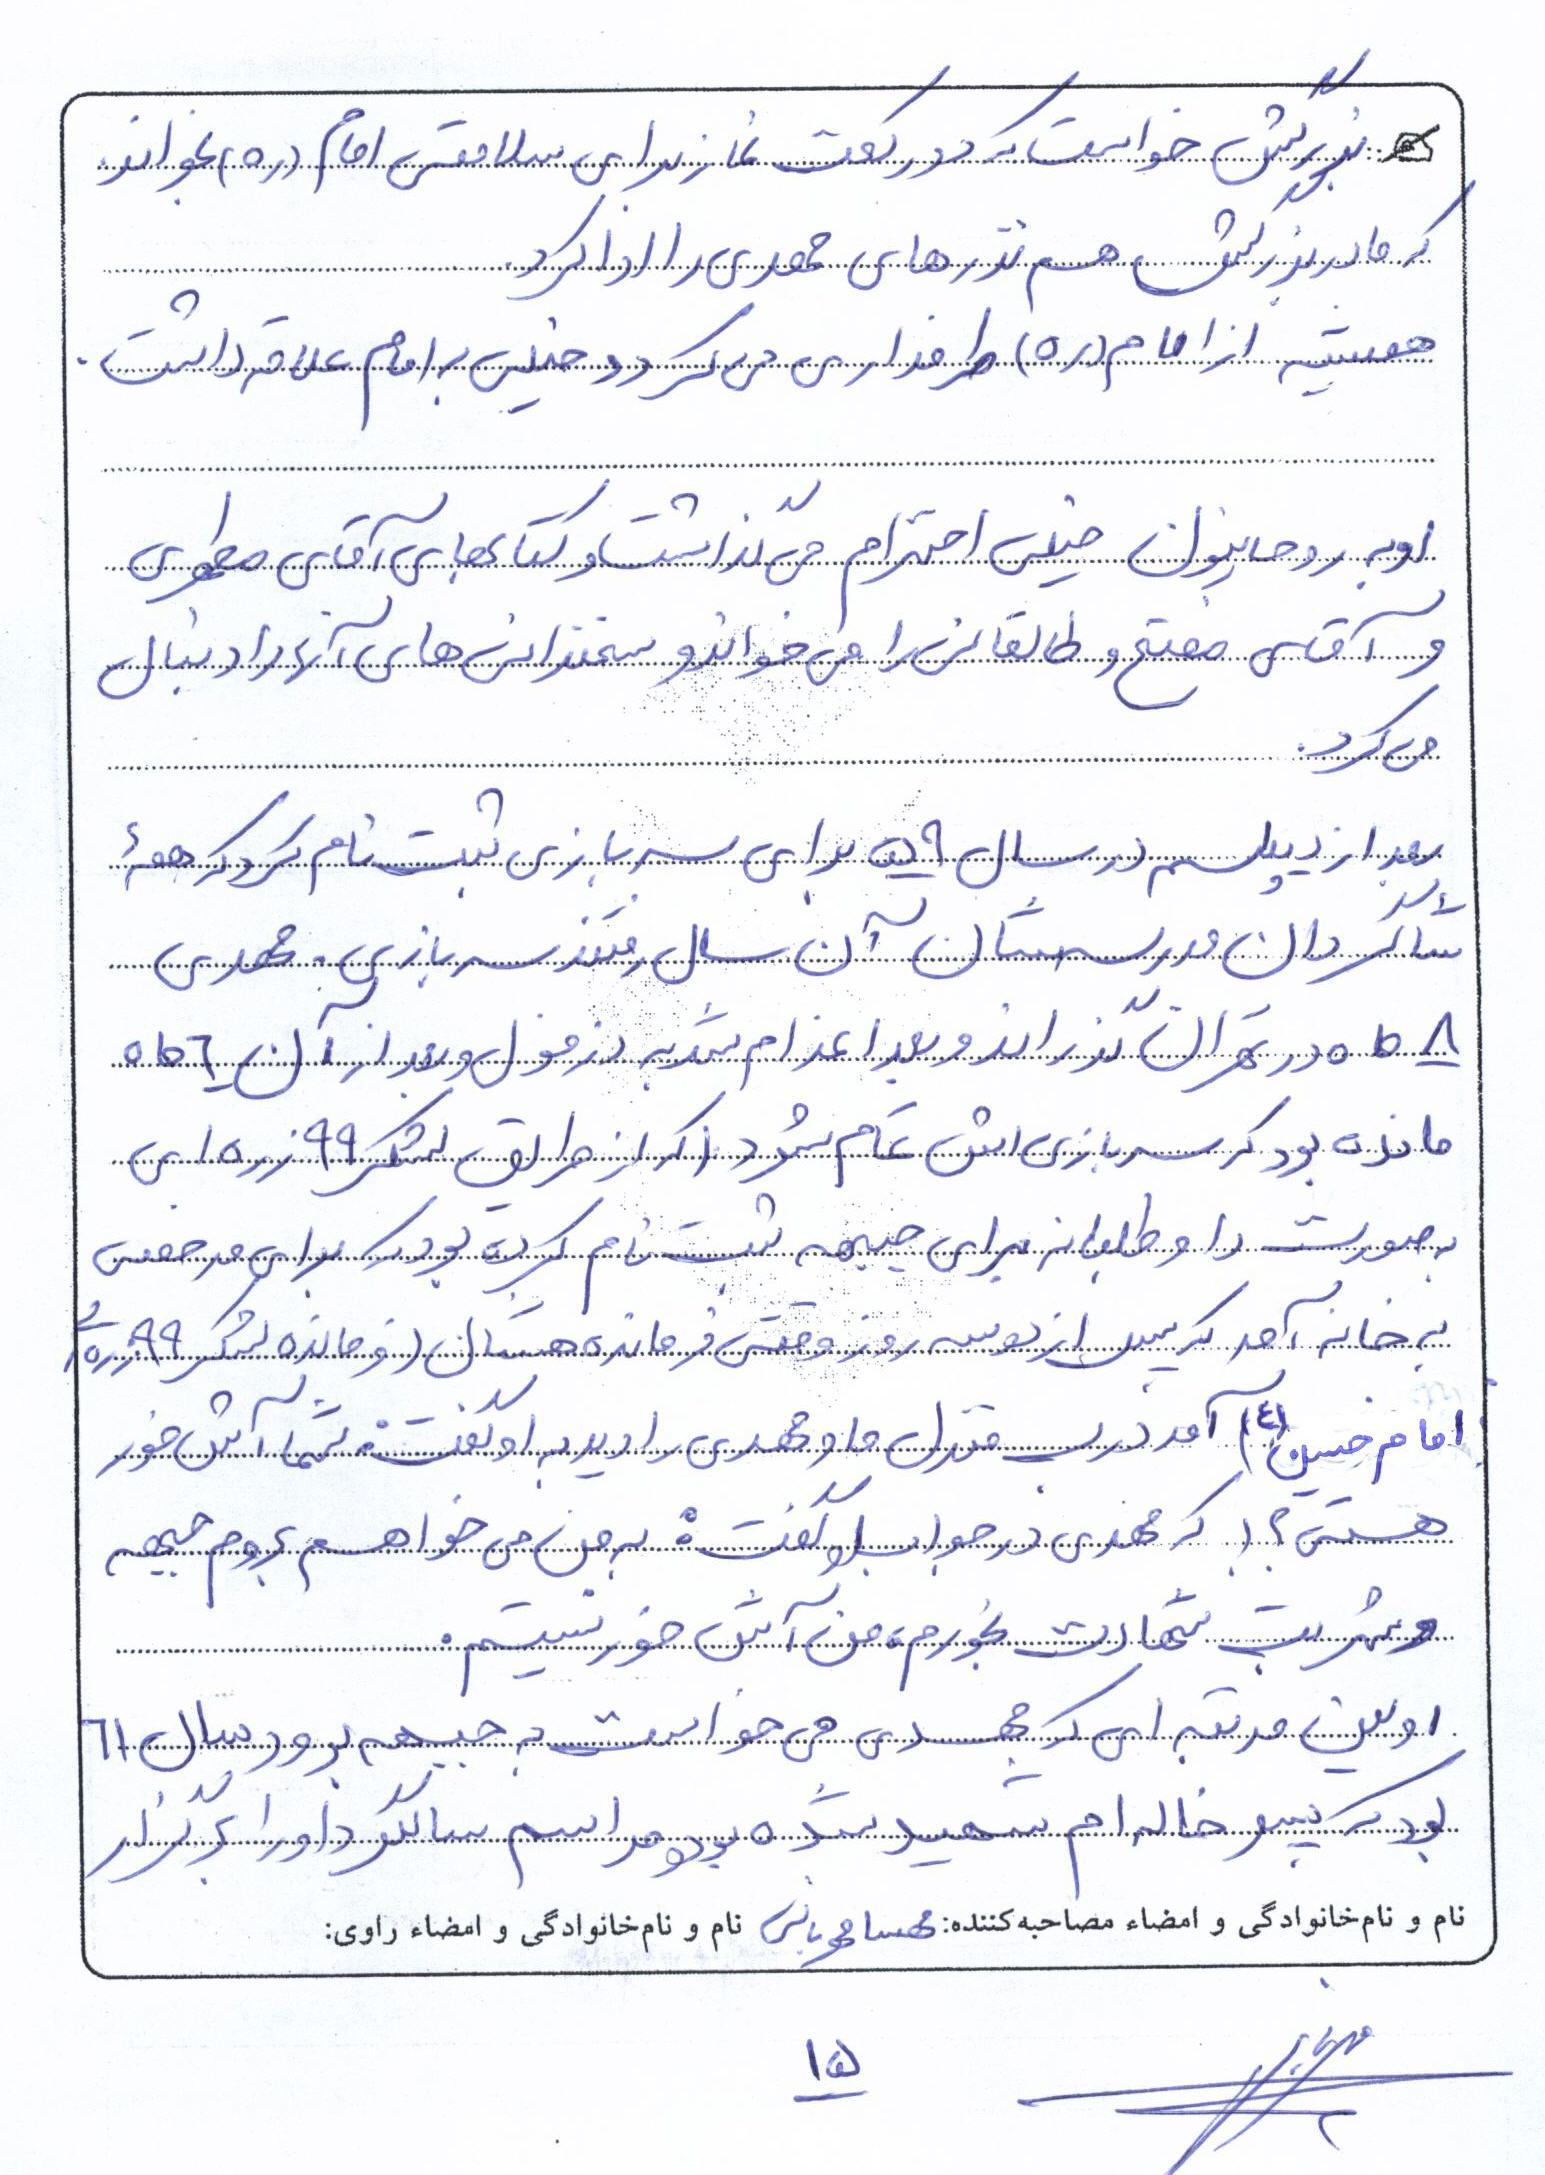 بزرگش خواست که دو رکعت نماز برای سلامتی امام (ره) بخواند.
که مادربزرگش هم نذرهای مهدی را ادا کرد.
همیشه از امام (ره) طرفداری می‌کرد و خیلی به امام علاقه داشت.
او به روحانیون خیلی احترام می‌گذاشت و کتابهای آقای مطهری
و آقای مفتح و طالقانی را می‌خواند و سخنرانی‌های آنها را دنبال
می‌کرد.
بعد از دیپلم در سال ۵۹ برای سربازی ثبت نام کرد که همهٔ
شاگردان مدرسه‌شان آن سال رفتند سربازی. مهدی
۸ ماه در تهران گذراند و بعد اعزام شد به دزفول و بعد از آن ۶ ماه
مانده بود که سربازی‌اش تمام شود (که از طریق لشکر ۹۹ زره‌ای
به صورت داوطلبانه برای جبهه ثبت نام کرده بود که برای مرخصی
به خانه آمد که پس از دو سه روز وقتی فرمانده‌شان (فرمانده لشکر ۹۹ زره‌ای
امام حسین (ع)) آمد درب منزل ما و مهدی را دید به او گفت: شما آش خور
هستی؟! که مهدی در جواب او گفت: نه من می‌خواهم بروم جبهه
و شربت شهادت بخورم، من آش خور نیستم.
اولین مرتبه‌ای که مهدی می‌خواست به جبهه برود سال ۶۱
بود که پسر خاله‌ام شهید شده بود و مراسم سالگرد او را برگزار
نام و نام‌خانوادگی و امضاء مصاحبه‌کننده: مهسا مهربانی نام و نام‌خانوادگی و امضاء راوی:
۱۵